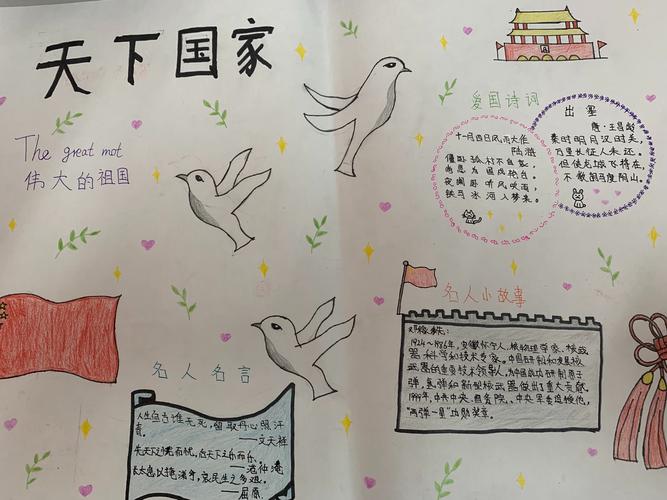 天下国家
The great mot
伟大的祖国
爱国诗词
十一月四日风雨大作
陆游
僵卧孤村不自哀,
尚思为国戍轮台。
夜阑卧听风吹雨,
铁马冰河入梦来。
出塞
唐·王昌龄
秦时明月汉时关,
万里长征人未还。
但使龙城飞将在,
不教胡马度阴山。
名人小故事
邓稼先:
1924~1986年,安徽怀宁人,核物理学家、核武
器科学和技术专家。中国研制和发展核
武器的重要技术领导人,为中国成功研制原子
弹,氢弹和新型核武器做出了重大贡献。
1999年,中共中央、国务院、中央军委追授他,
“两弹一星”功勋奖章。
名人名言
人生自古谁无死,留取丹心照汗
青。
——文天祥
先天下之忧而忧,后天下之乐而乐。
——范仲淹
太息以掩涕兮,哀民生之多艰。
——屈原